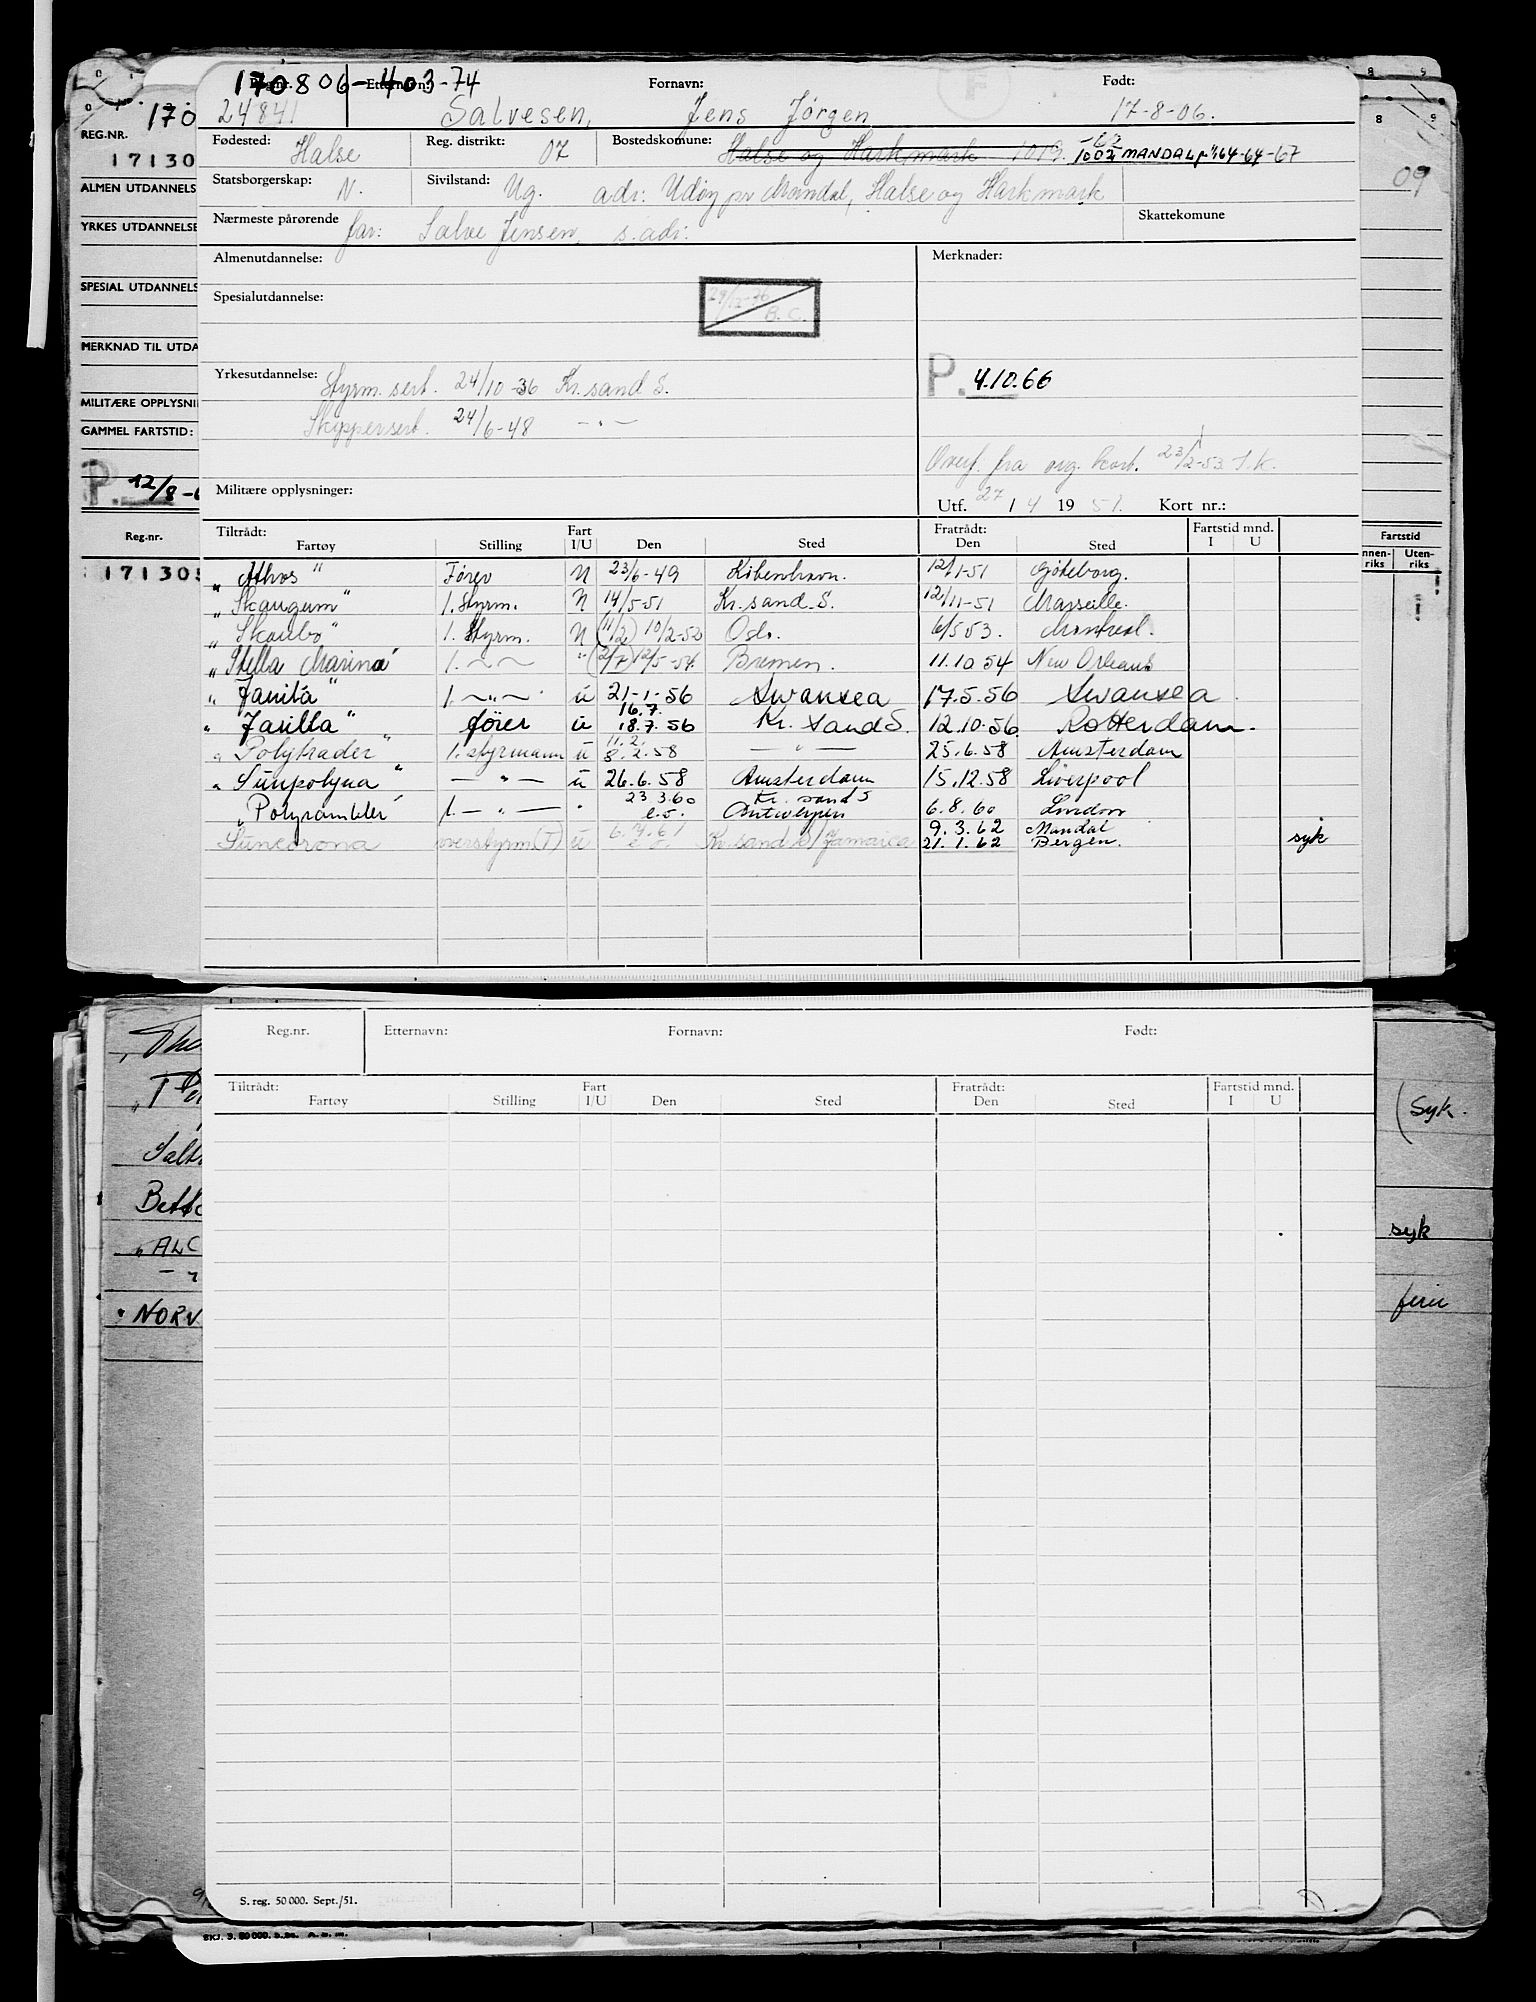 170806-403-74
Reg.nr. Etternavn: Fornavn: Født:
24841 Salvesen, Jens Jørgen 17-8-06.
Fødested: Halse Reg. distrikt: 07 Bostedskomune: Halse og Harkmark 1019. 1002 MANDAL 64-64-67
Statsborgerskap: N. Sivilstand: Ug. adr: Udøy pr Mandal, Halse og Harkmark
Nærmeste pårørende far: Salve Jensen, s. adr. Skattekomune
Almenutdannelse: Merknader:
Spesialutdannelse: B. C.
Yrkesutdannelse: Styrm. sert. 24/10-36 Kr.sand S. P. 4.10.66
Skippersert. 24/6-48 — " —
Overf. fra org. kort. 23/2-53 S.K.
Militære opplysninger: Utf. 27 / 4 1951. Kort nr.:
Tiltrådt: Fart Fratrådt: Fartstid mnd.
Fartøy Stilling I/U Den Sted Den Sted I U
"Athos" Fører U 23/6-49 København. 12/1-51 Göteborg.
"Skaugum" 1. Styrm. U 14/5-51 Kr.sand S. 12/11-51 Marseille.
"Skaubo" 1. Styrm. U (11/2) 10/2-52 Oslo. 6/5 53. Montreal.
"Stella Marina" 1. — " — " (2/7) 12/5-54. Bremen. 11.10 54 New Orleans
"Janita" 1. — " — u 21-1-56 Swansea 17.5.56 Swansea
"Jarilla" fører u 16.7. 18.7.56 Kr. Sand S. 12.10.56 Rotterdam.
"Polytrader" 1. styrmann u 11.2. 8.2.58 — " — 25.6.58 Amsterdam
"Sunpolyna" — " — u 26.6.58 Amsterdam 15.12.58 Liverpool
"Polyrambler" 1. — " — " 23 3.60 e.o. Kr. sand S Antwerpen 6.8.60 London
Suncorona overstyrm(T) u e.o. Kr.sand S/Jamaica 9.3.62 Mandal
21.1.62 Bergen. syk
170
REG.NR.
17130
ALMEN UTDANNELS
YRKES UTDANNELSE
SPESIAL UTDANNELS
MERKNAD TIL UTDA
MILITÆRE OPPLYSNI
GAMMEL FARTSTID:
P. 12/8-6
Reg.nr.
171305
8 9
09
Fartstid
nnen-riks Uten-riks
Reg.nr. Etternavn: Fornavn: Født:
Tiltrådt: Fart Fratrådt: Fartstid mnd.
Fartøy Stilling I/U Den Sted Den Sted I U
S. reg. 50 000. Sept./51.
Betto
"ALC
"NORV
(Syk.
syk
ferie